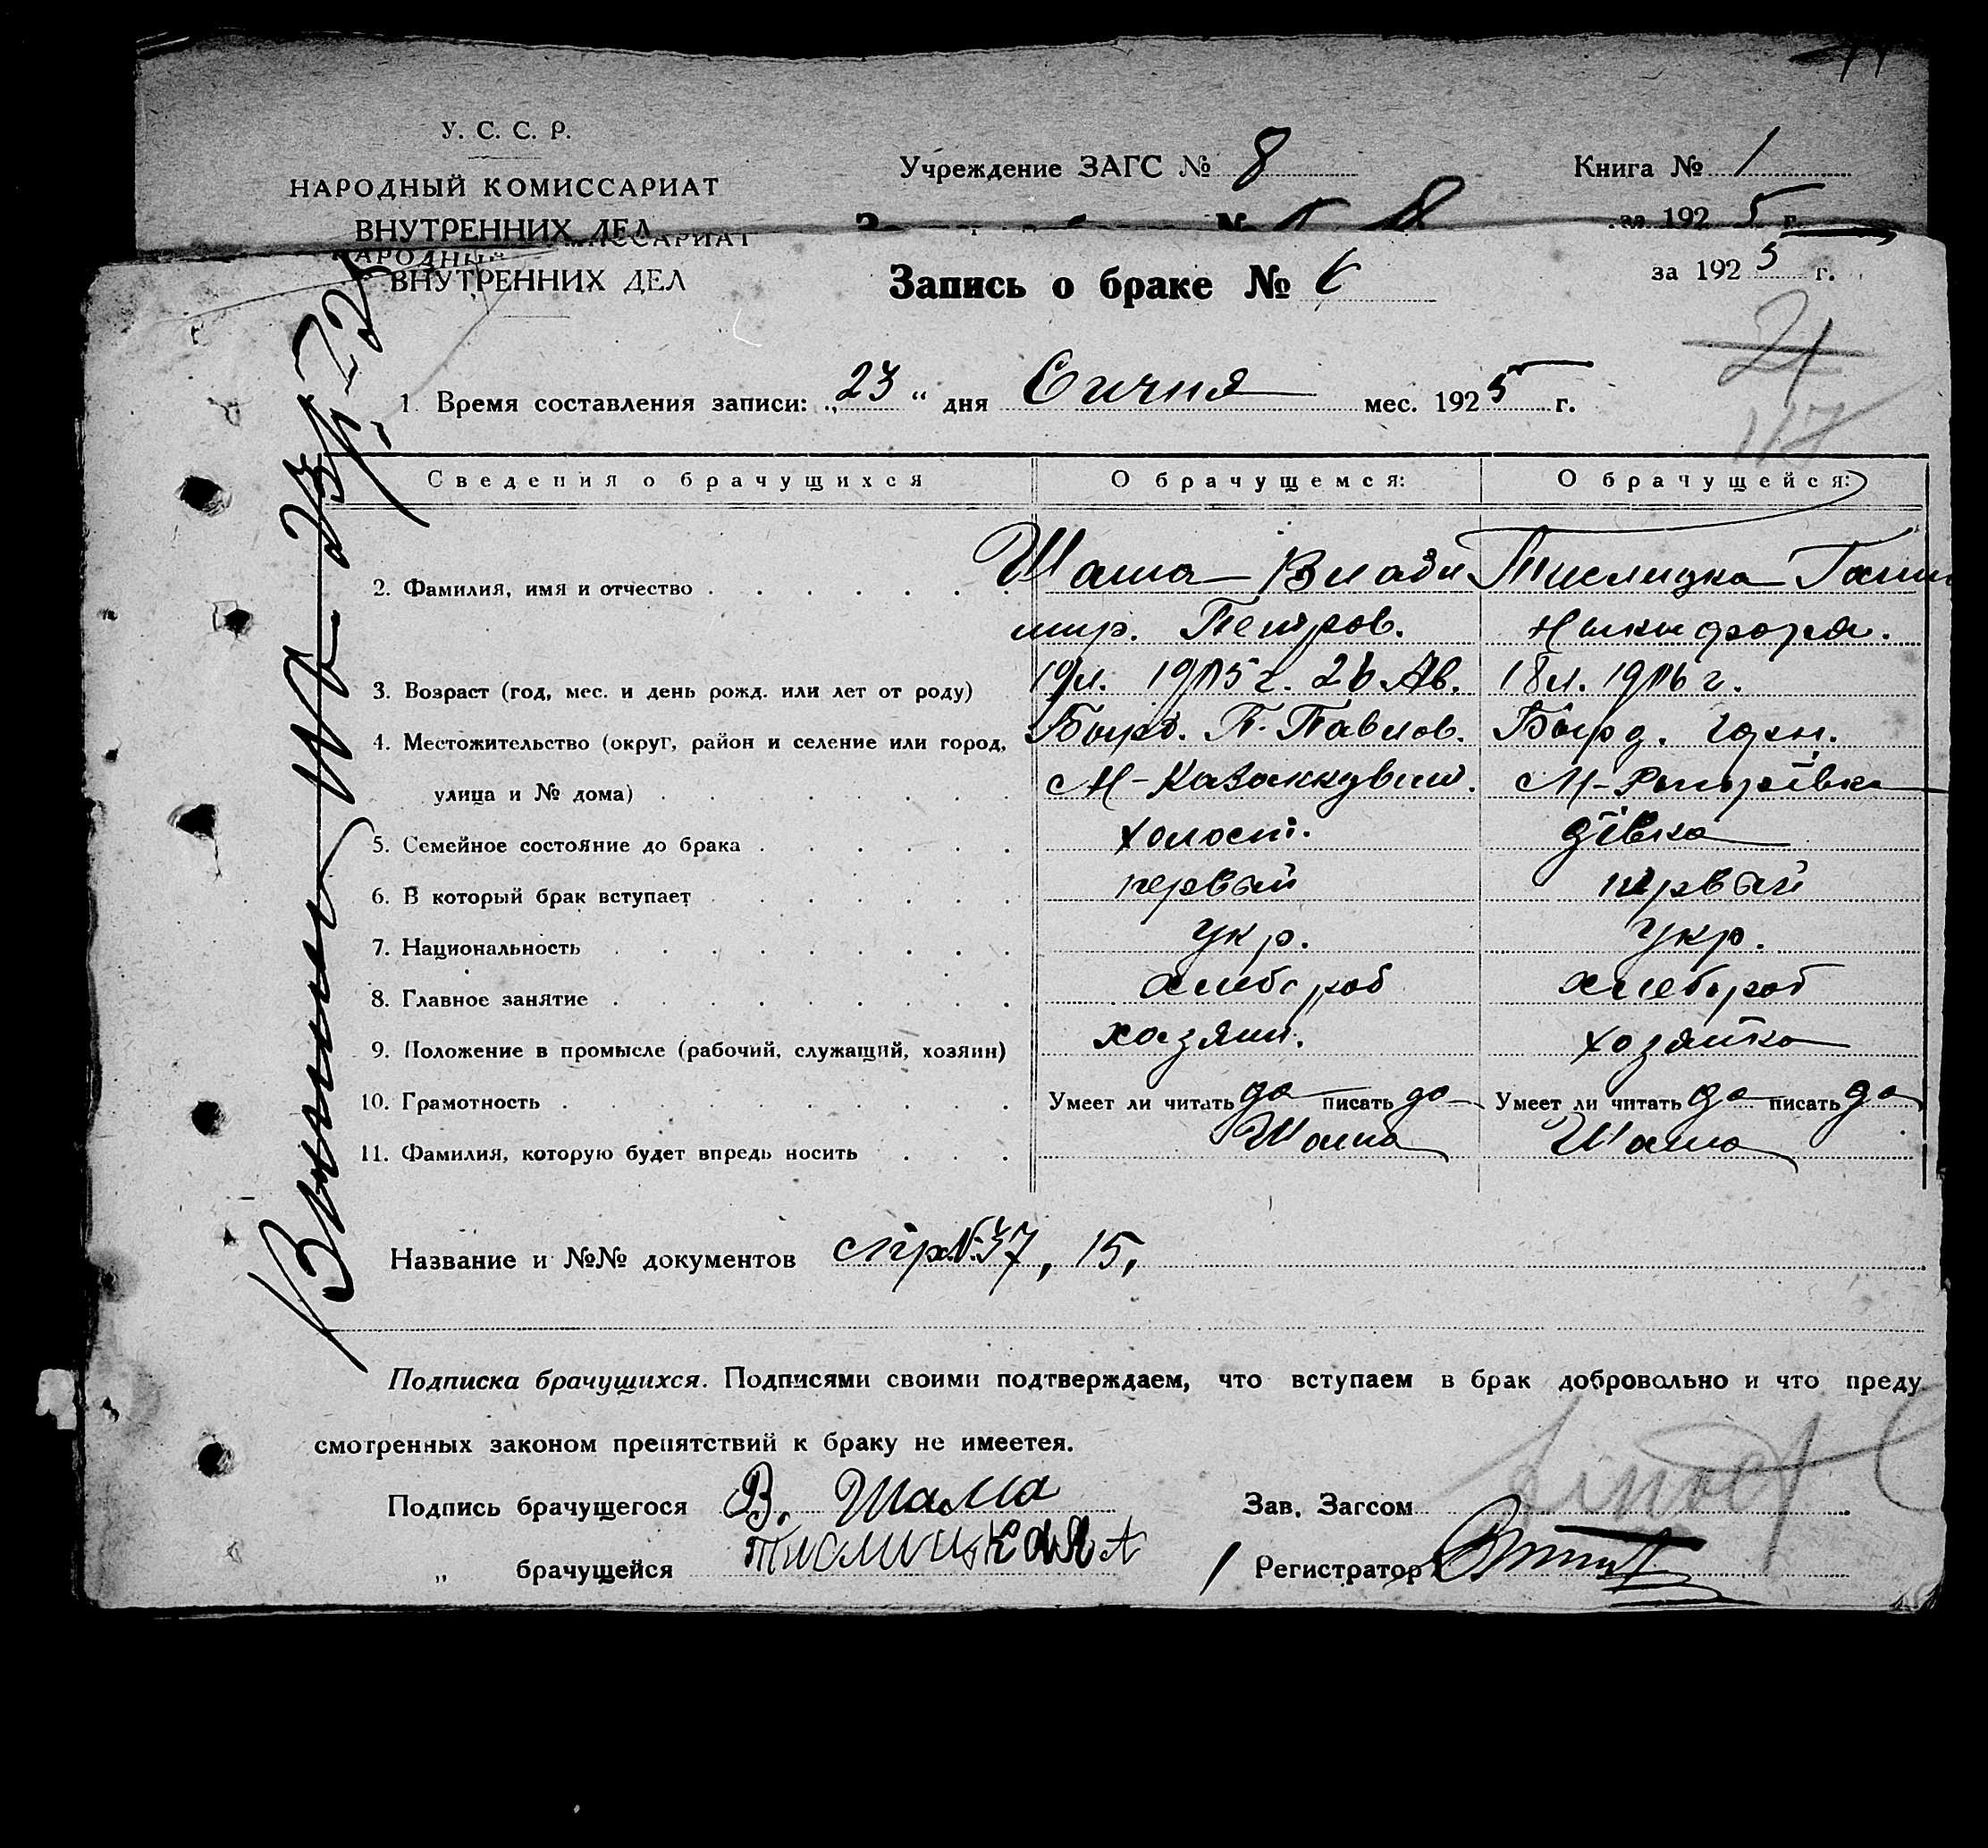 У. С. С. Р.
НАРОДНЫЙ КОМИССАРИАТ
ВНУТРЕННИХ ДЕЛ
Учреждение ЗАГС № 8
Книга № 1
за 1925 г.
ВНУТРЕННИХ ДЕЛ
Запись о браке № 6
за 1925 г.
21
117
1. Время составления записи: „23“ дня Сичня мес. 1925 г.
Сведения о брачущихся О брачущемся: О брачущейся:
2. Фамилия, имя и отчество Шама Влади Тислицка Ганна
мир. Петров. Никифоря.
3. Возраст (год, мес. и день рожд. или лет от роду) 19л. 1905г. 26 Ав. 18л. 1906 г.
4. Местожительство (округ, район и селение или город, П. Павлов.
улица и № дома)
5. Семейное состояние до брака холост. дівка
6. В который брак вступает первый первый
7. Национальность Укр. Укр.
8. Главное занятие хлебороб хлебороб
9. Положение в промысле (рабочий, служащий, хозяин) хазяин. хозяйка
10. Грамотность Умеет ли читать да писать да Умеет ли читать да писать да
11. Фамилия, которую будет впредь носить Шама Шама
Название и №№ документов №37, 15,
Подписка брачущихся. Подписями своими подтверждаем, что вступаем в брак добровольно и что преду
смотренных законом препятствий к браку не имеется.
Подпись брачущегося В. Шама
Зав. Загсом
„ брачущейся Тислицькая
Регистратор